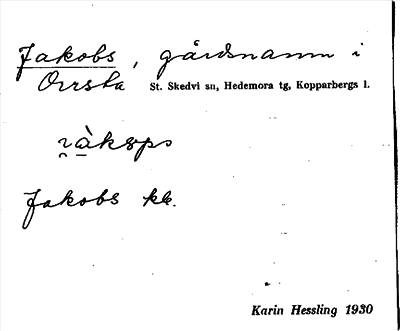 Jakobs, gårdsnamn i
Orrsta St. Skedvi sn, Hedemora tg, Kopparbergs l.
Jakobs kk.
Karin Hessling 1930